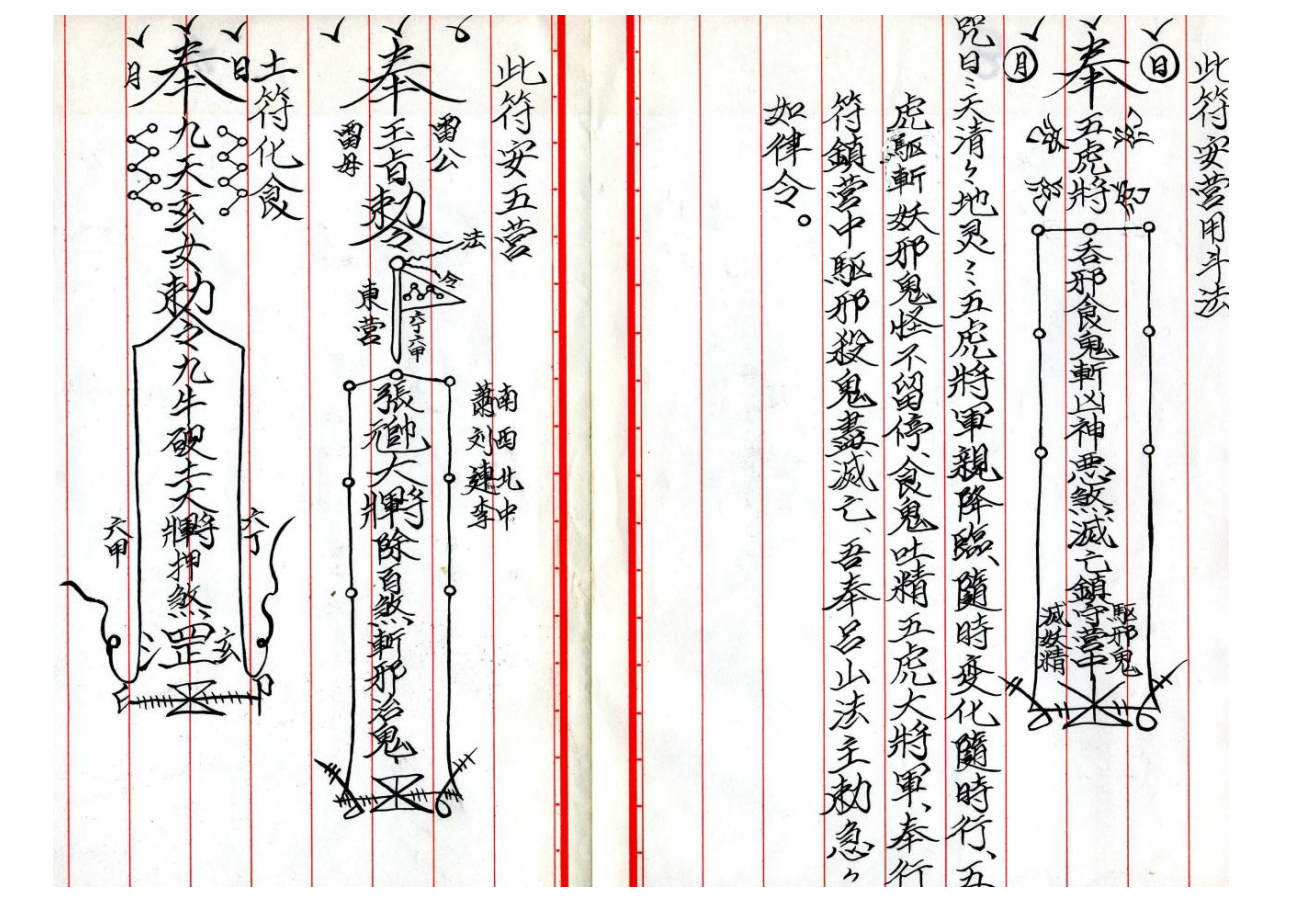 此符安营用斗法
日
奉
月
五虎將
吞邪食鬼斬凶神悪煞滅亡鎮守营中
駆邪鬼
滅妖精
咒曰ミ天清々地灵ミ五虎將軍親降臨、隨時变化隨時行、五
虎駆斬妖邪鬼怪不留停、食鬼吐精五虎大將軍、奉行
符鎮营中駆邪殺鬼盡滅亡、吾奉吕山法主勅急々
如律令。
此符安五营
奉
雷公
玉旨
雷母
勅令
法
令
六甲
東营
張
帥大將除百煞斬邪治鬼
南西北中
蕭刘連李
土符化食
日
奉
月
九天玄女勅令九牛破土大將押煞
六丁
六甲
罡